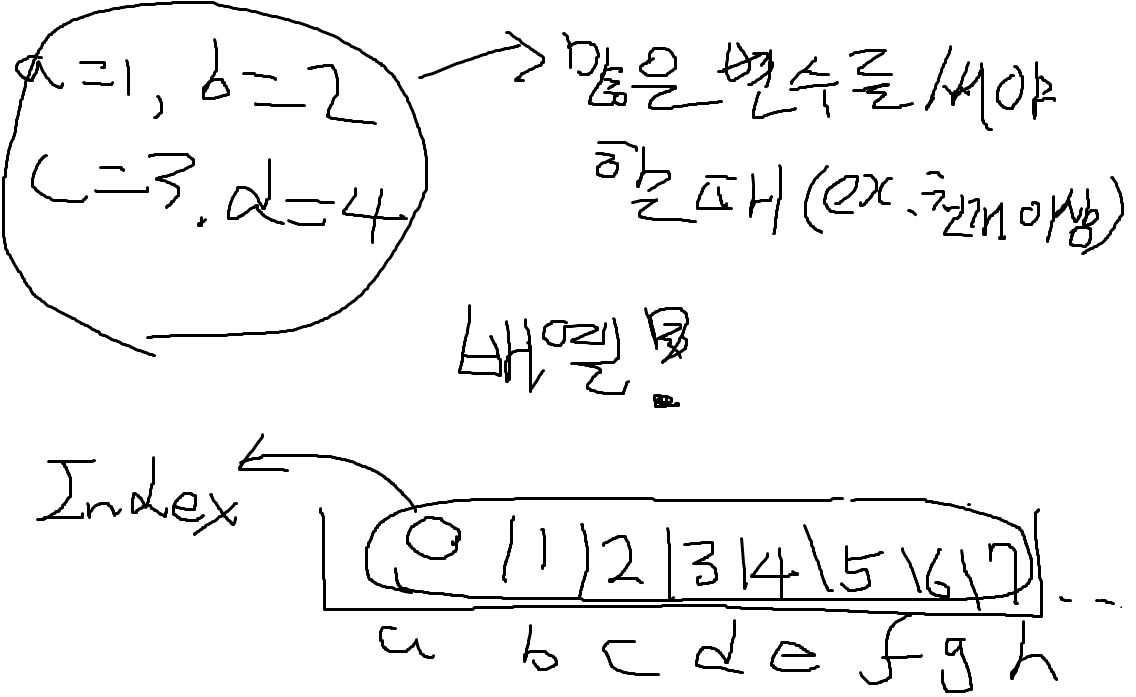 a=1, b=2
c=3. d=4
많은 변수를 써야
할 때 (ex. 천개 이상)
배열!
Index
0 | 1 | 2 | 3 | 4 \ 5 \ 6 \ 7 | ...
a b c d e f g h